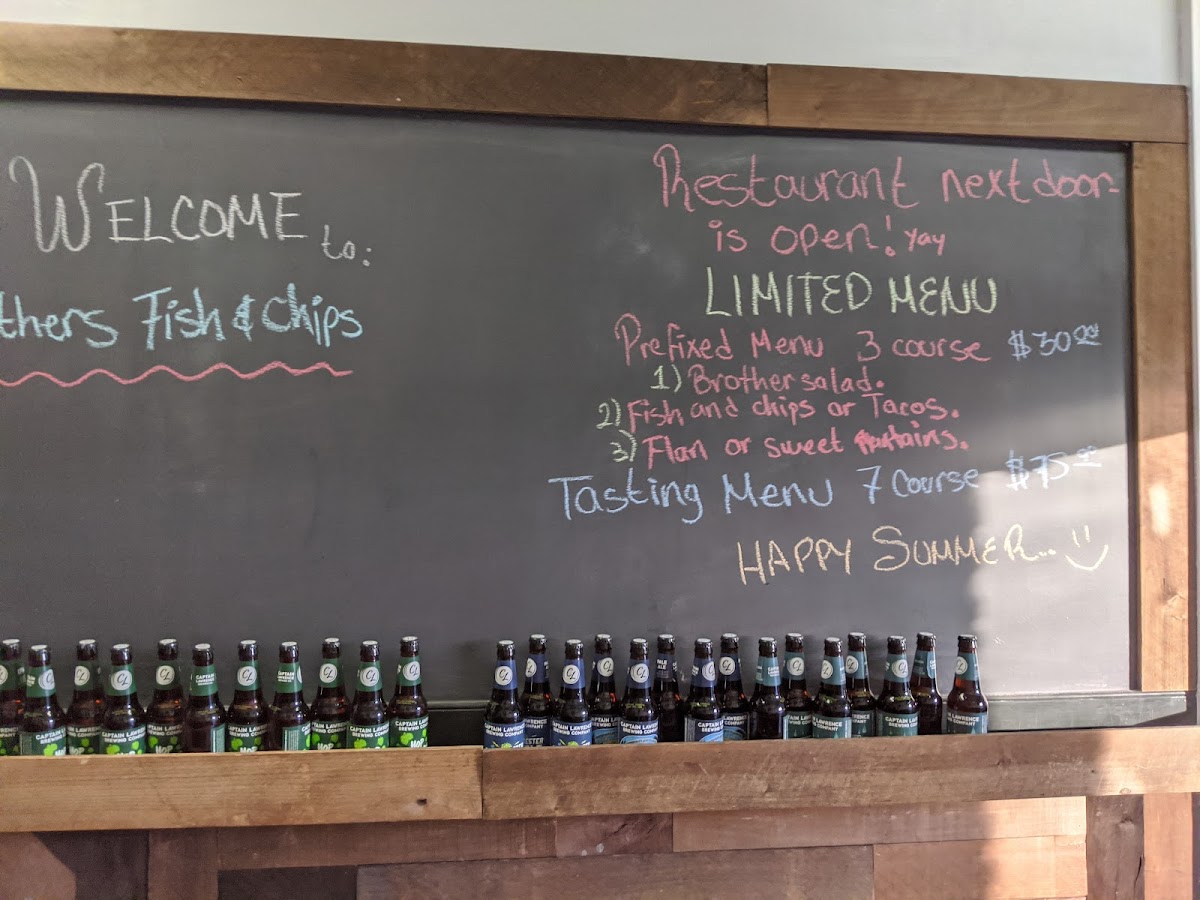 WELCOME to:
thers Fish & Chips
Restaurant next door
is open! Yay
LIMITED MENU
Prefixed Menu 3 course $30.00
1) Brother salad.
2) Fish and chips or Tacos.
3) Flan or sweet
Tasting Menu 7 course $75.00
HAPPY SUMMER..
CAPTAIN LAWRENCE
BREWING COMPANY
HOP
CAPTAIN LAWRENCE
BREWING COMPANY
HOP
CAPTAIN LAWRENCE
BREWING COMPANY
HOP
PALE
ALE